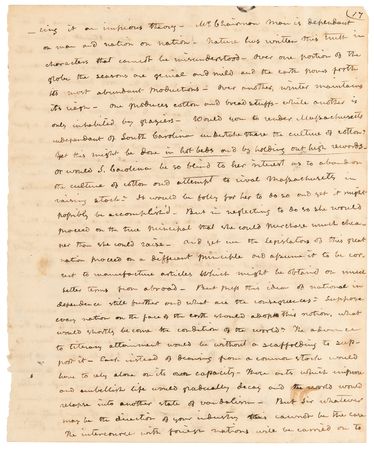 (17
cing it an impious theory — Mr Chairman man is dependant
on man and nation on nation — Nature has written this truth in
characters that cannot be misunderstood — Over one portion of the
globe the seasons are genial and mild and the earth pours forth
its most abundant productions — Over another, winter maintains
its reign — One produces cotton and bread stuffs — while another is
only inhabited by graziers — Would you to render Massachusetts
independant of South Carolina undertake there the culture of cotton?
Yet this might be done in hot beds and by holding out high rewards —
Or would S. Carolina be so blind to her interest as to abandon
the culture of cotton and attempt to rival Massachusetts in
raising stock — It would be folly for her to do so and yet it might
possibly be accomplish'd — But in neglecting to do so she would
proceed on the true principal that she could purchase much chea-
per than she could raise — And yet we the legislators of this great
nation proceed on a different principle and assume it to be cor-
rect to manufacture articles which might be obtain'd on much
better terms from abroad — But press this idea of national in
dependence still further and what are the consequences? Suppose
every nation on the face of the earth should adopt this notion, what
would shortly become the condition of the world? The advance
to literary attainment would be without a scaffolding to sup-
port it — Each instead of drawing from a common stock would
have to rely alone on its own capacity — Those arts which improve
and embellish life would gradually decay and the world would
relapse into another state of vandalism — But Sir whatever
may be the direction of your industry this cannot be the case
The intercourse with foreign nations will be carried on to